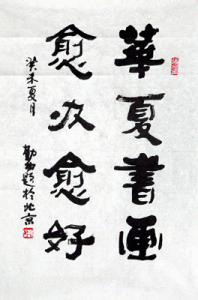 華夏書畫
愈办愈好
癸未夏月
勤勉題於北京